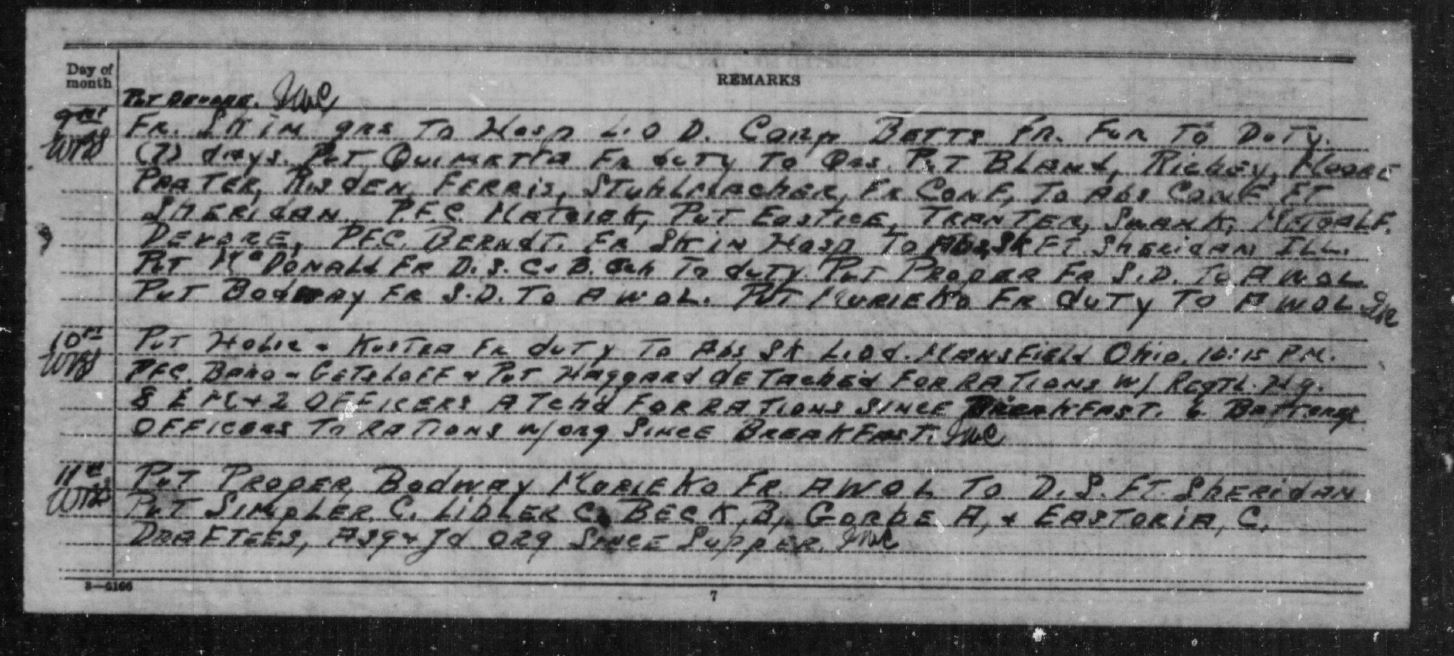 Day of month
REMARKS
Pvt Devore. JWC
9th Fr. SK in qrs To Hosp L.O D. Corp Betts Fr. Fur To Duty.
WRB (7) days. Pvt Quimetta Fr duty To Qrs. Pvt Bland, Richey, Moore
Prater, Risden, Ferris, Stuhlmacher, Fr Conf, To Abs Conf Ft
Sheridan, PFC Matsiak, Pvt Eastice, Tranter, Swank, Metcalf.
9 Devore, PFC. Berndt. Fr SK in Hosp To Abs SK Ft. Sheridan ILL.
Pvt McDonald Fr D.S. C. & B. Sch To duty Pvt Proper Fr S.D. To AWOL
Pvt Bodway Fr S.D. To AWOL. Pvt Murieko Fr duty To AWOL JWC
10th Pvt Holie & Kostra Fr duty To Abs SK L.O.D. Mansfield Ohio. 10:15 P.M.
WRB PFC Baho - Getsloff & Pvt Haggard detached For Rations w/ Regtl. Hq.
8 EM & 2 Officers Atchd For Rations Since Breakfast. 6 Battery
Officers To Rations w/org Since Breakfast. JWC
11th Pvt Proper Bodway Murieko Fr. AWOL To D.S. Ft Sheridan
WRB Pvt Simpler, C. Lidler C. Beck, B, Gorde A, & Eastoria, C.
Draftees, Asg & Jd Org Since Supper. JWC
3—6166
7